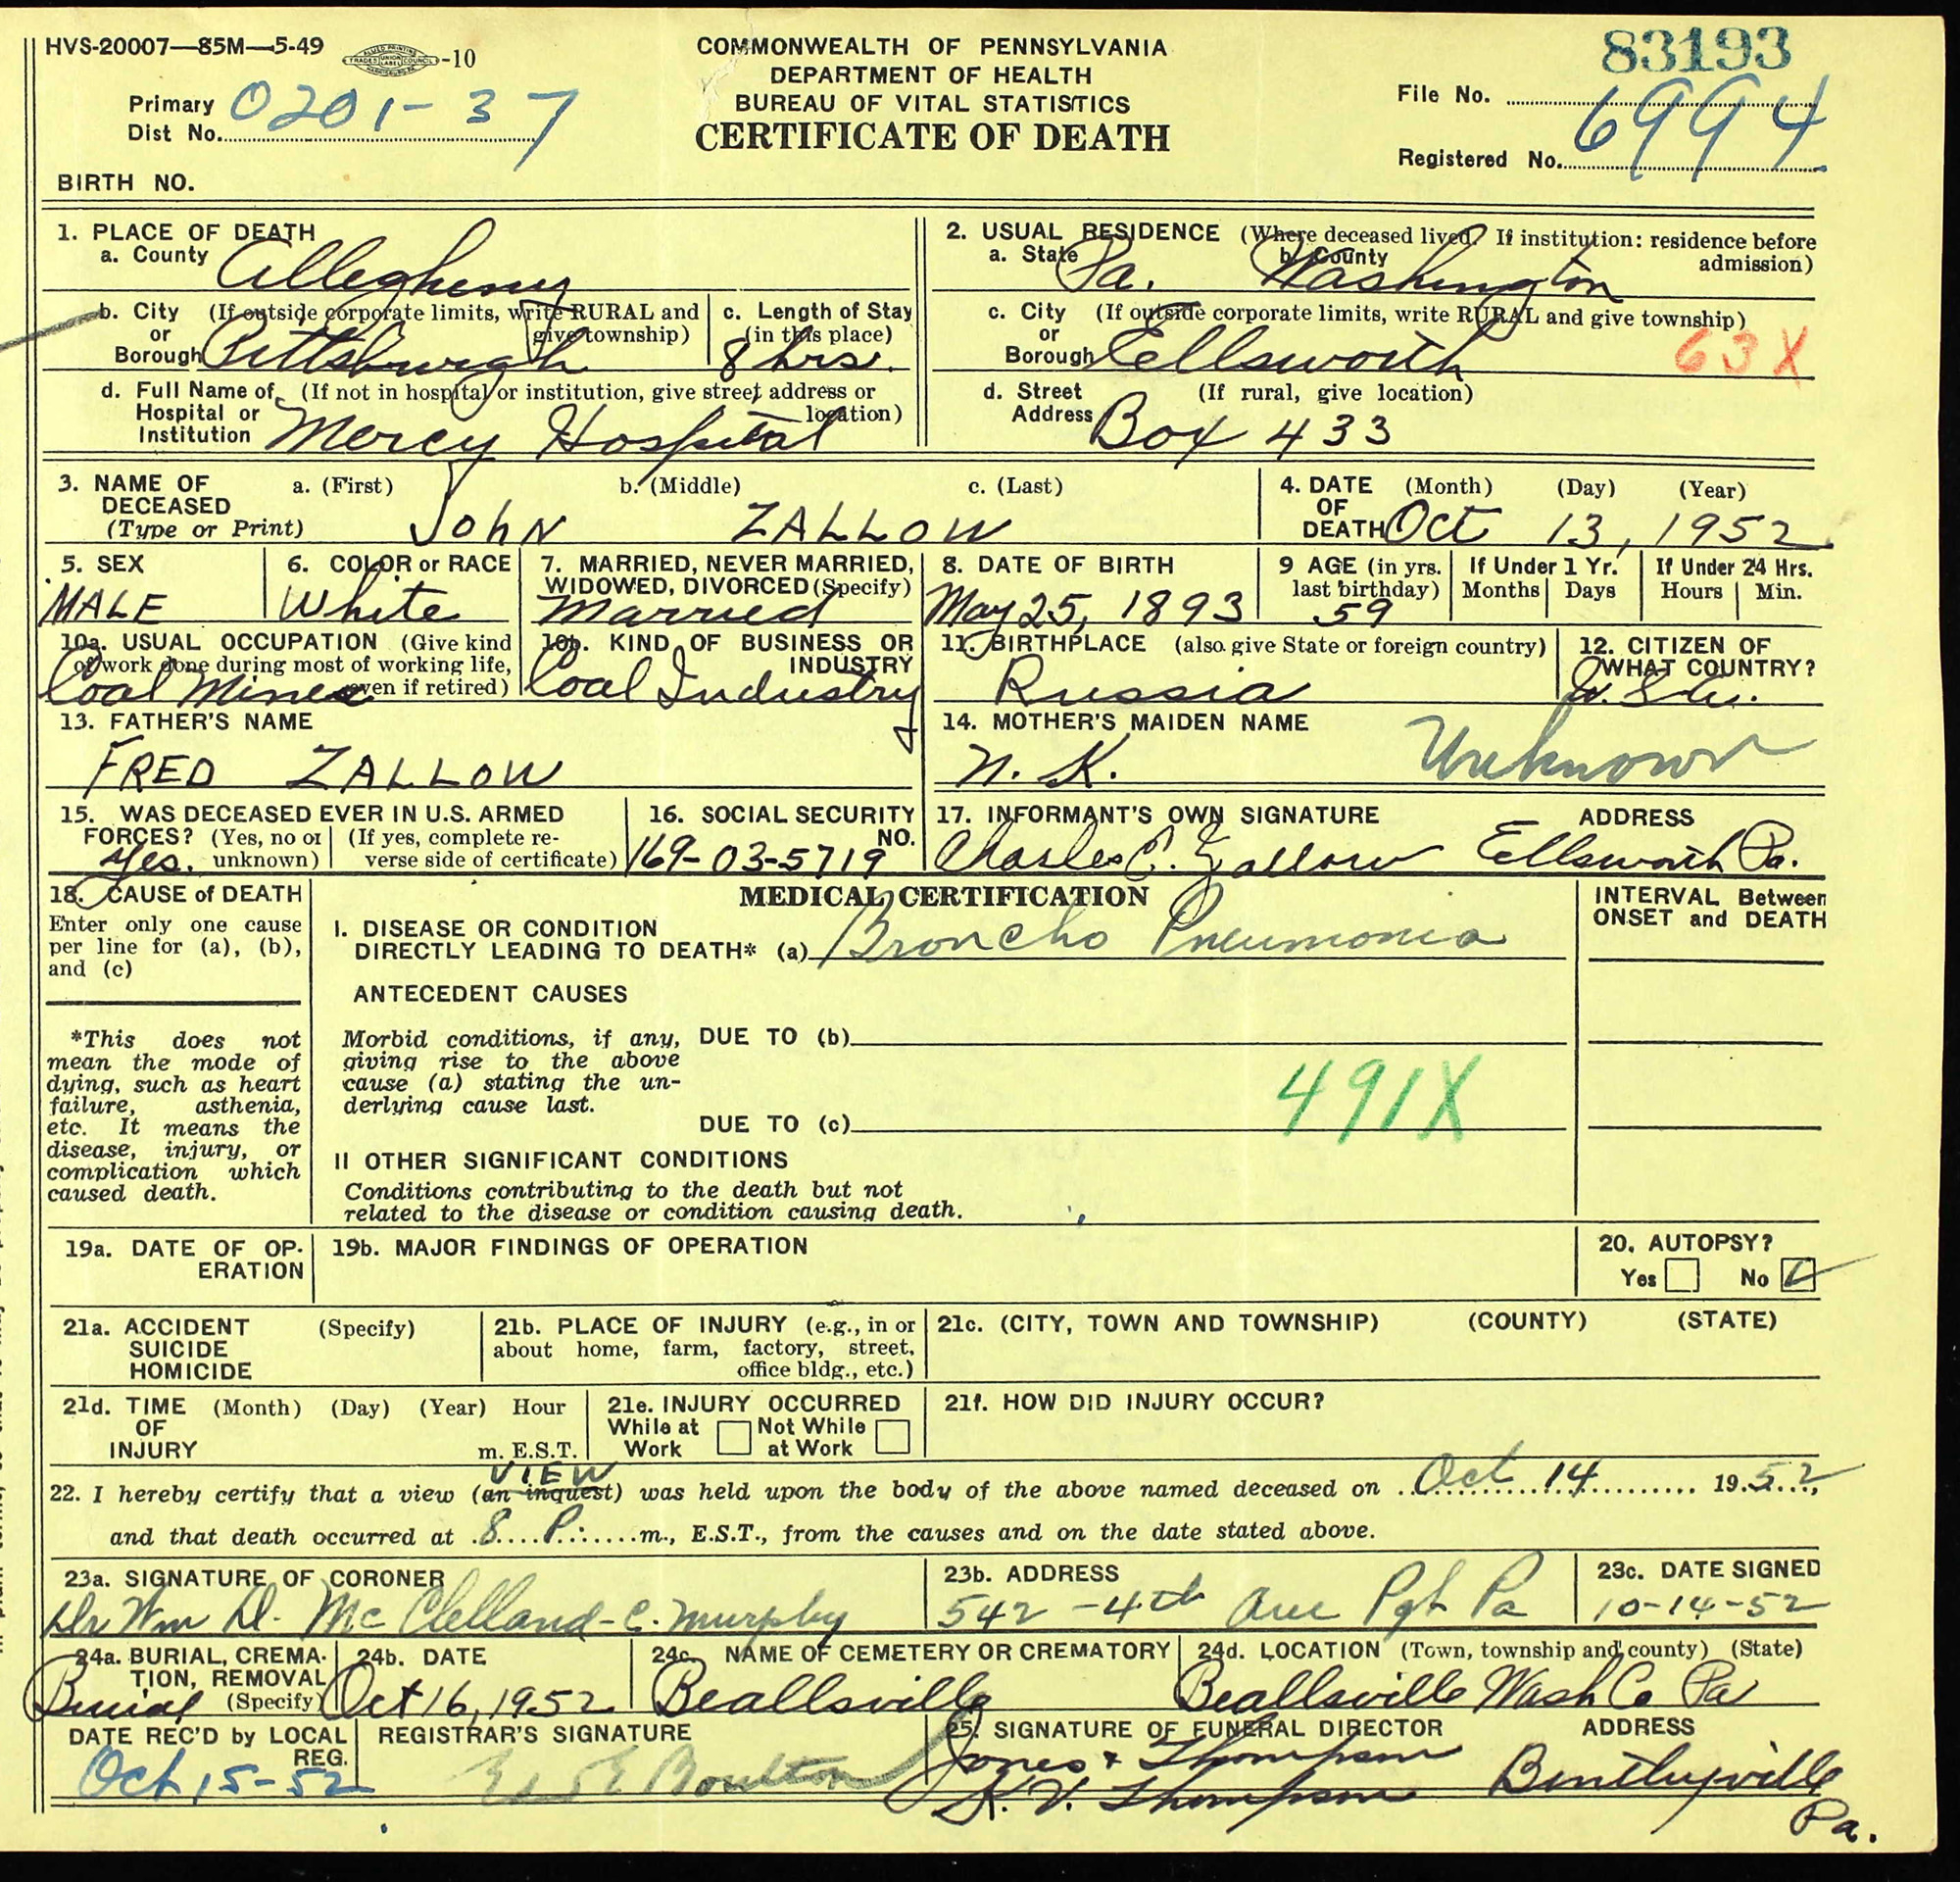 HVS-20007—85M—5-49 -10
COMMONWEALTH OF PENNSYLVANIA
DEPARTMENT OF HEALTH
BUREAU OF VITAL STATISTICS
CERTIFICATE OF DEATH
83193
Primary Dist No. 0201-37
File No.
Registered No. 6994
BIRTH NO.
1. PLACE OF DEATH
a. County Allegheny
b. City or Borough (If outside corporate limits, write RURAL and give township) Pittsburgh
c. Length of Stay (in this place) 8 hrs.
d. Full Name of Hospital or Institution (If not in hospital or institution, give street address or location) Mercy Hospital
2. USUAL RESIDENCE (Where deceased lived. If institution: residence before admission)
a. State Pa. b. County Washington
c. City or Borough (If outside corporate limits, write RURAL and give township) Ellsworth 63X
d. Street Address (If rural, give location) Box 433
3. NAME OF DECEASED (Type or Print) a. (First) b. (Middle) c. (Last)
JOhN ZALLOW
4. DATE OF DEATH (Month) (Day) (Year) Oct 13, 1952
5. SEX MALE
6. COLOR or RACE White
7. MARRIED, NEVER MARRIED, WIDOWED, DIVORCED (Specify) Married
8. DATE OF BIRTH May 25, 1893
9 AGE (in yrs. last birthday) 59
If Under 1 Yr. Months Days
If Under 24 Hrs. Hours Min.
10a. USUAL OCCUPATION (Give kind of work done during most of working life, even if retired) Coal Miner
10b. KIND OF BUSINESS OR INDUSTRY Coal Industry
11. BIRTHPLACE (also give State or foreign country) Russia
12. CITIZEN OF WHAT COUNTRY?
13. FATHER'S NAME
FRED ZALLOW
14. MOTHER'S MAIDEN NAME
N. K. Unknown
15. WAS DECEASED EVER IN U.S. ARMED FORCES? (Yes, no or unknown) (If yes, complete reverse side of certificate) Yes.
16. SOCIAL SECURITY NO. 169-03-5719
17. INFORMANT'S OWN SIGNATURE ADDRESS
Charles C. Zallow Ellsworth Pa.
18. CAUSE of DEATH
Enter only one cause per line for (a), (b), and (c)
*This does not mean the mode of dying, such as heart failure, asthenia, etc. It means the disease, injury, or complication which caused death.
MEDICAL CERTIFICATION
INTERVAL Between ONSET and DEATH
I. DISEASE OR CONDITION
DIRECTLY LEADING TO DEATH* (a) Broncho Pneumonia
ANTECEDENT CAUSES
Morbid conditions, if any, giving rise to the above cause (a) stating the underlying cause last.
DUE TO (b)
491X
DUE TO (c)
II OTHER SIGNIFICANT CONDITIONS
Conditions contributing to the death but not
related to the disease or condition causing death.
19a. DATE OF OPERATION
19b. MAJOR FINDINGS OF OPERATION
20. AUTOPSY?
Yes No
21a. ACCIDENT SUICIDE HOMICIDE (Specify)
21b. PLACE OF INJURY (e.g., in or about home, farm, factory, street, office bldg., etc.)
21c. (CITY, TOWN AND TOWNSHIP) (COUNTY) (STATE)
21d. TIME OF INJURY (Month) (Day) (Year) Hour m. E.S.T.
21e. INJURY OCCURRED While at Work Not While at Work
21f. HOW DID INJURY OCCUR?
VIEW
22. I hereby certify that a view (an inquest) was held upon the body of the above named deceased on Oct 14 1952,
and that death occurred at 8 P. m., E.S.T., from the causes and on the date stated above.
23a. SIGNATURE OF CORONER
Dr Wm D. McClelland-C. Murphy
23b. ADDRESS
542-4th Ave Pgh Pa
23c. DATE SIGNED
10-14-52
24a. BURIAL, CREMATION, REMOVAL (Specify) Burial
24b. DATE Oct 16, 1952
24c. NAME OF CEMETERY OR CREMATORY Beallsville
24d. LOCATION (Town, township and county) (State) Beallsville Wash Co Pa
DATE REC'D by LOCAL REG. Oct 15-52
REGISTRAR'S SIGNATURE Boulton
25. SIGNATURE OF FUNERAL DIRECTOR ADDRESS
Jones & Thompson
K. V. Thompson Bentleyville
Pa.